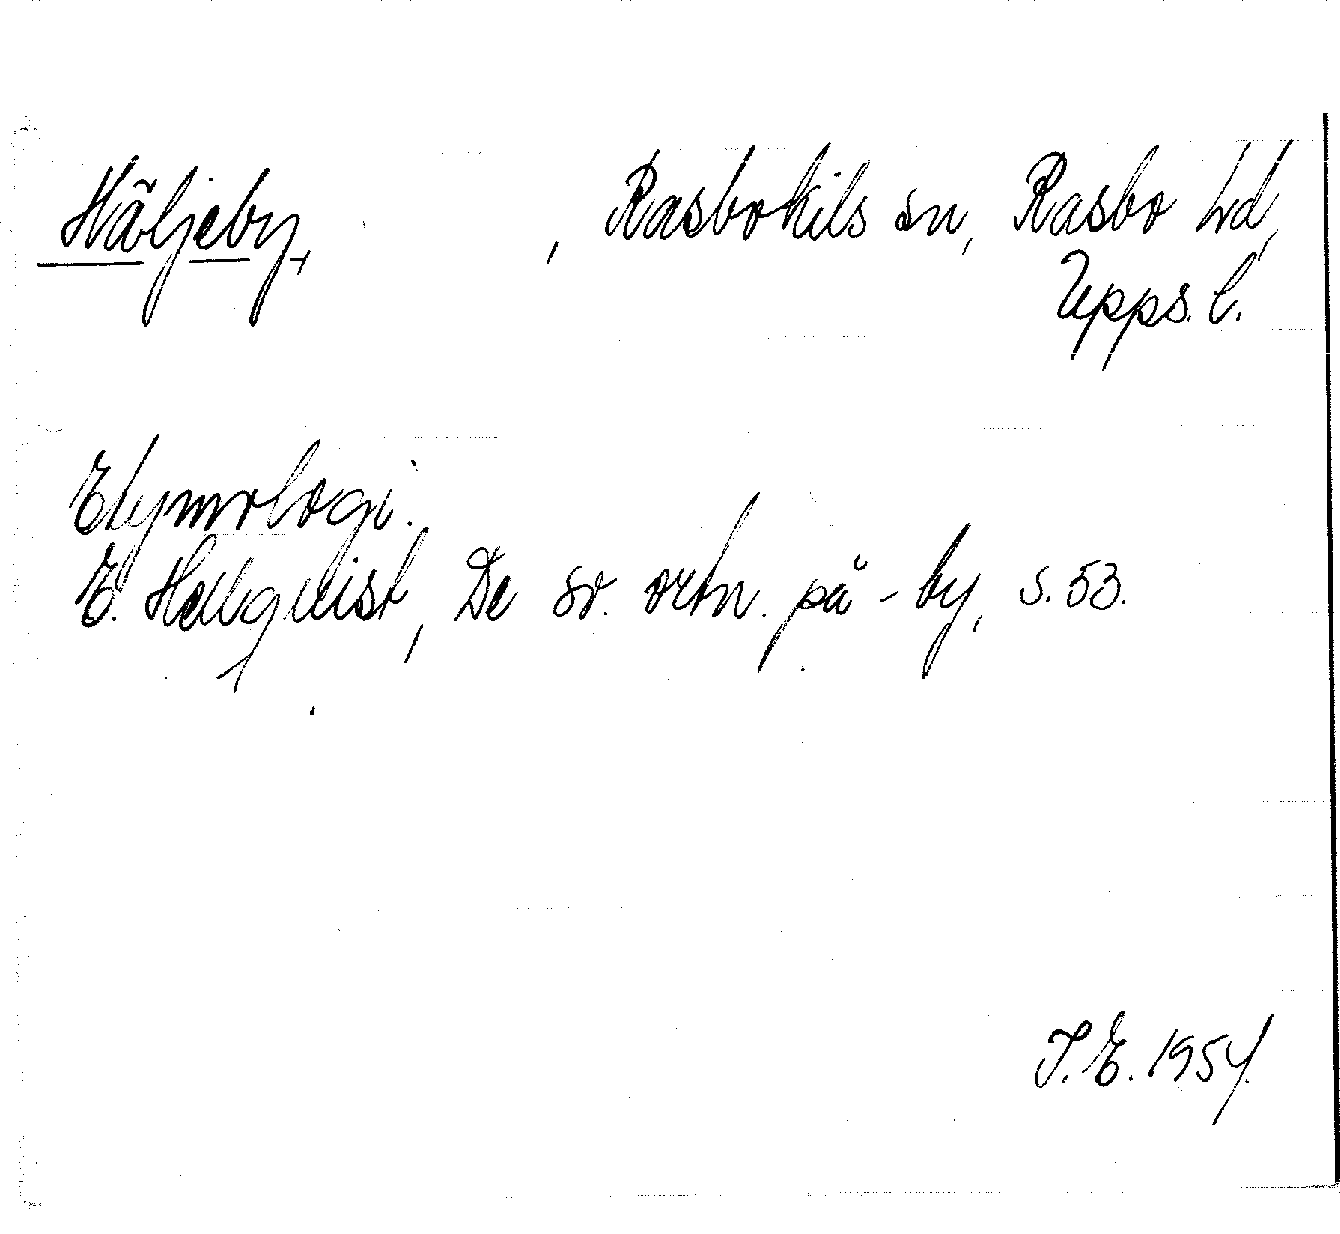 Häljeby, , Rasbokils sn, Rasbo hd,
Upps. l.
Etymologi.
E. Hellquist, De sv. ortn. på -by, s. 53.
I. E. 1954.